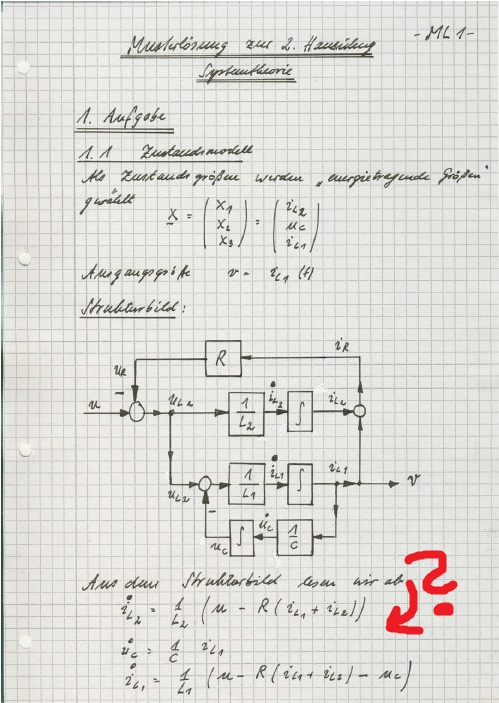 - ML 1 -
Musterlösung zur 2. Hausübung
Systemtheorie
1. Aufgabe
1.1 Zustandsmodell
Als Zustandsgrößen werden „energietragende Größen"
gewählt
x = (x1 x2 x3) = (iL2 uC iL1)
Ausgangsgröße v = iL1 (t)
Strukturbild:
R iR
uR
−
u uL2 1/L2 i̊L2 ∫ iL2
uL2 1/L1 i̊L1 ∫ iL1 v
−
uC ∫ ůC 1/C
Aus dem Strukturbild lesen wir ab
?
i̊L2 = 1/L2 (u − R (iL1 + iL2))
ůC = 1/C iL1
i̊L1 = 1/L1 (u − R (iL1 + iL2) − uC)